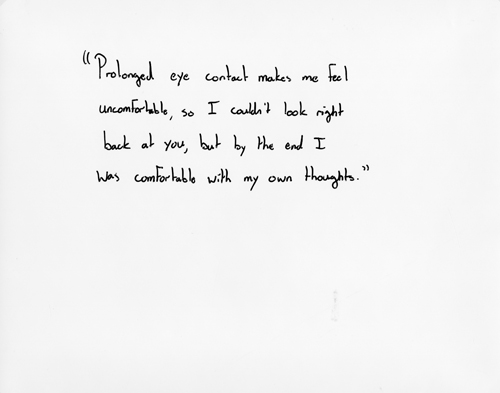 "Prolonged eye contact makes me feel
uncomfortable, so I couldn't look right
back at you, but by the end I
was comfortable with my own thoughts."